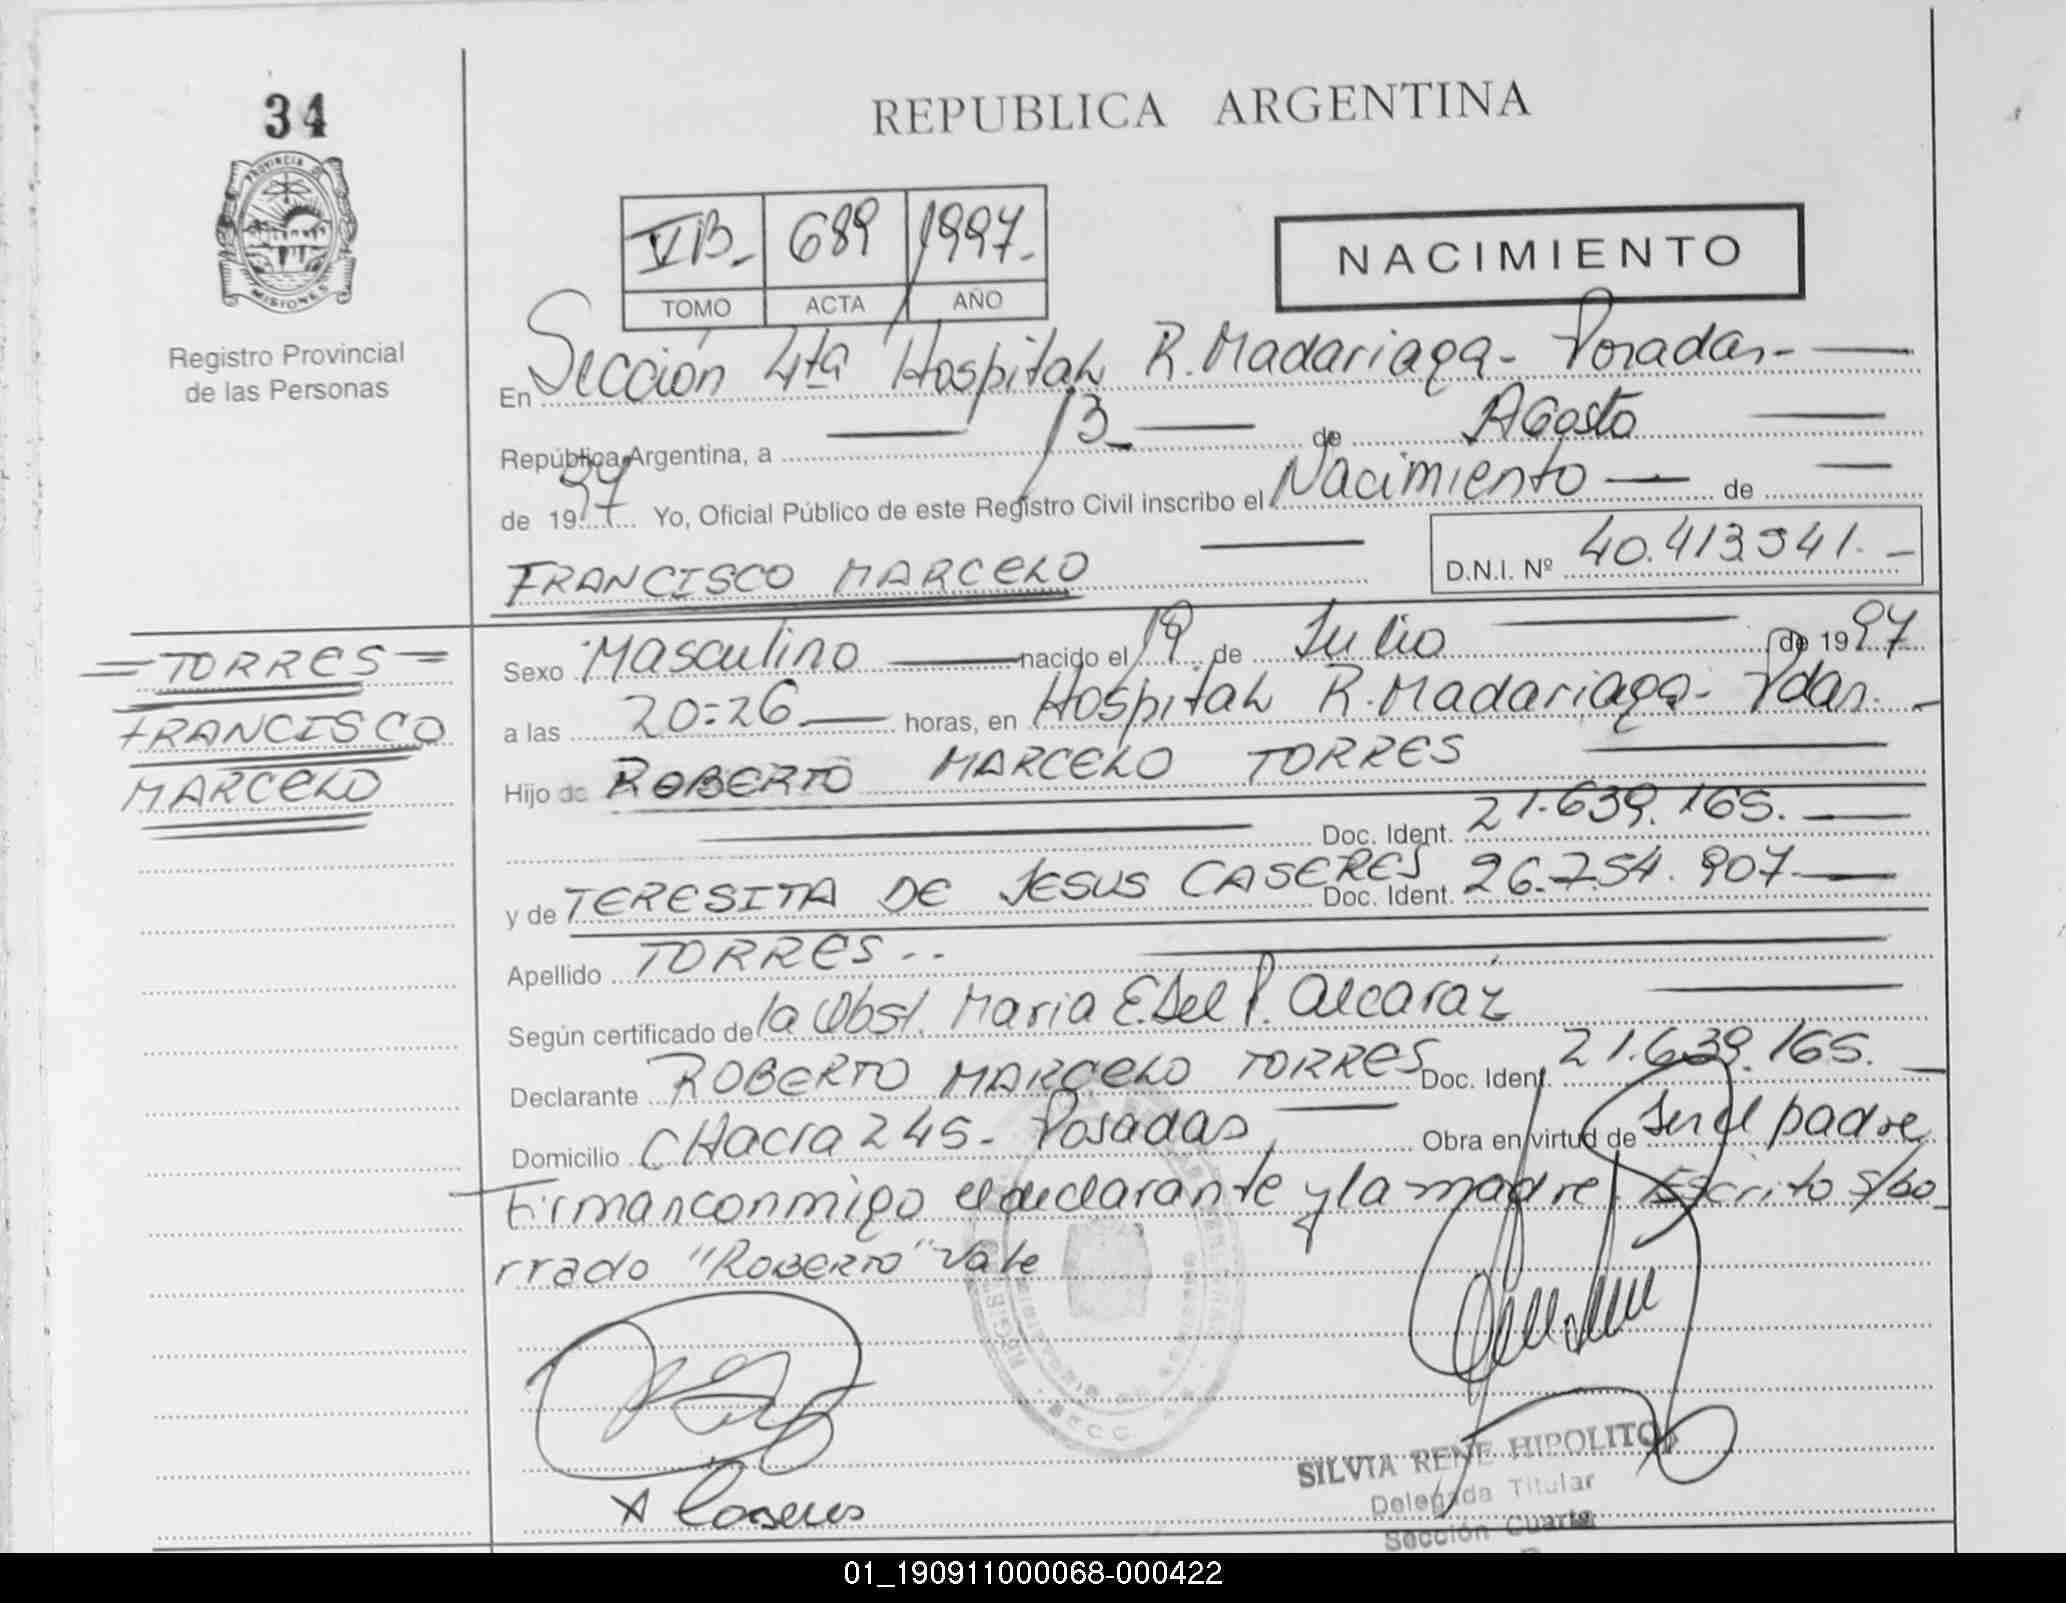 34
REPUBLICA ARGENTINA
PROVINCIA DE
MISIONES
Registro Provincial
de las Personas
VB- 689 1997.-
TOMO ACTA AÑO
NACIMIENTO
En Sección 4ta Hospital R. Madariaga - Posadas -
República Argentina, a 13 de Agosto
de 1997 Yo, Oficial Público de este Registro Civil inscribo el Nacimiento de
FRANCISCO MARCELO
D.N.I. Nº 40.413.941.-
= TORRES =
FRANCISCO
MARCELO
Sexo Masculino nacido el 19 de Julio de 1997
a las 20:26 horas, en Hospital R. Madariaga - Pdas. -
Hijo de ROBERTO MARCELO TORRES
Doc. Ident. 21.639.165.
y de TERESITA DE JESUS CASERES Doc. Ident. 26.754.907.
Apellido TORRES..
Según certificado de la Obst. Maria E. del P. Alcaráz
Declarante ROBERTO MARCELO TORRES Doc. Ident. 21.639.165.
Domicilio CHacra 245 - Posadas, Obra en virtud de Ser el padre
Firman conmigo el declarante y la madre. Escrito s/bo
rrado "ROBERTO" Vale
Caseres
SILVIA RENE HIPOLITO
Delegada Titular
Sección Cuarta
01_190911000068-000422